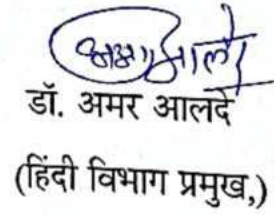 डॉ. अमर आलदे
(हिंदी विभाग प्रमुख,)